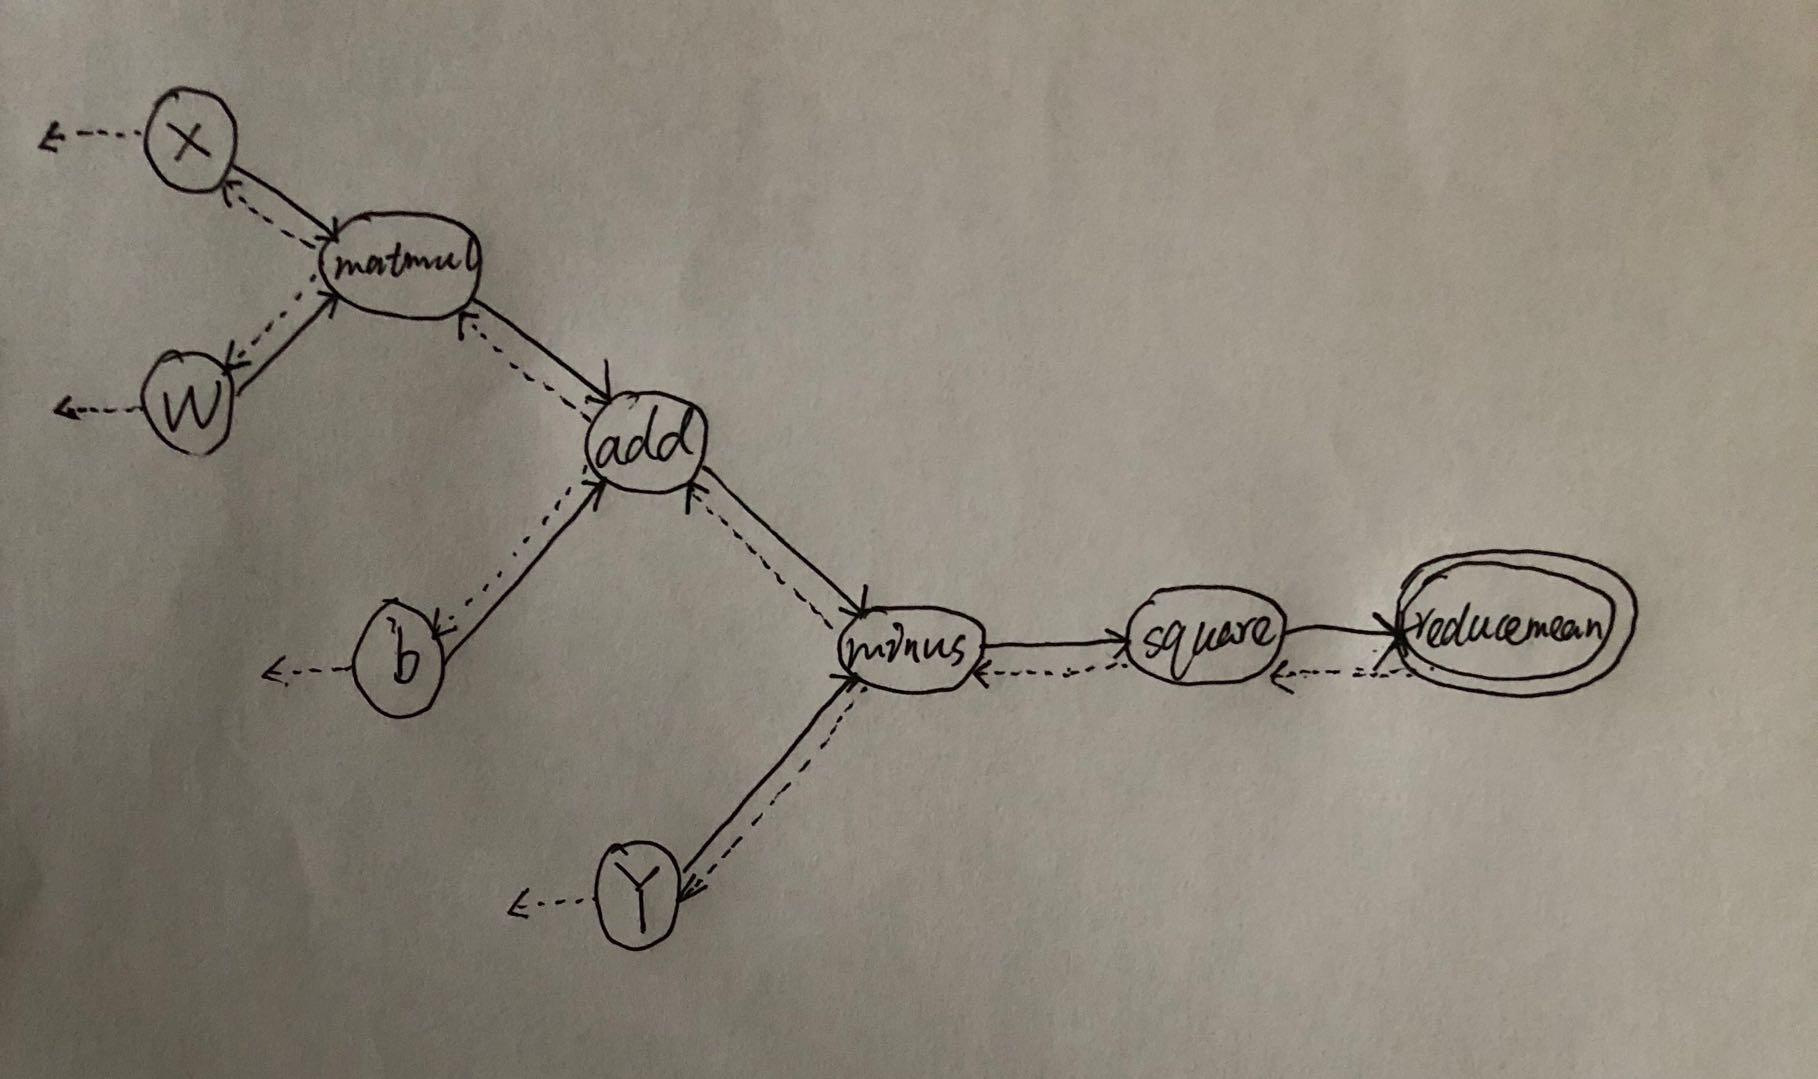 X
matmul
W
add
b
minus
square
reducemean
Y